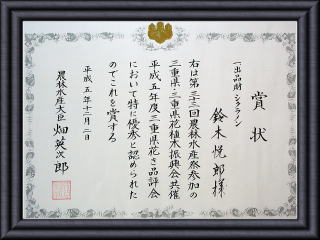 賞状
(出品財 シクラメン)
鈴木悦郎様
右は第三十二回農林水産祭参加の
三重県・三重県花植木振興会共催
平成五年度三重県花き品評会
において特に優秀と認められた
のでこれを賞する
平成五年十二月二日
農林水産大臣 畑英次郎